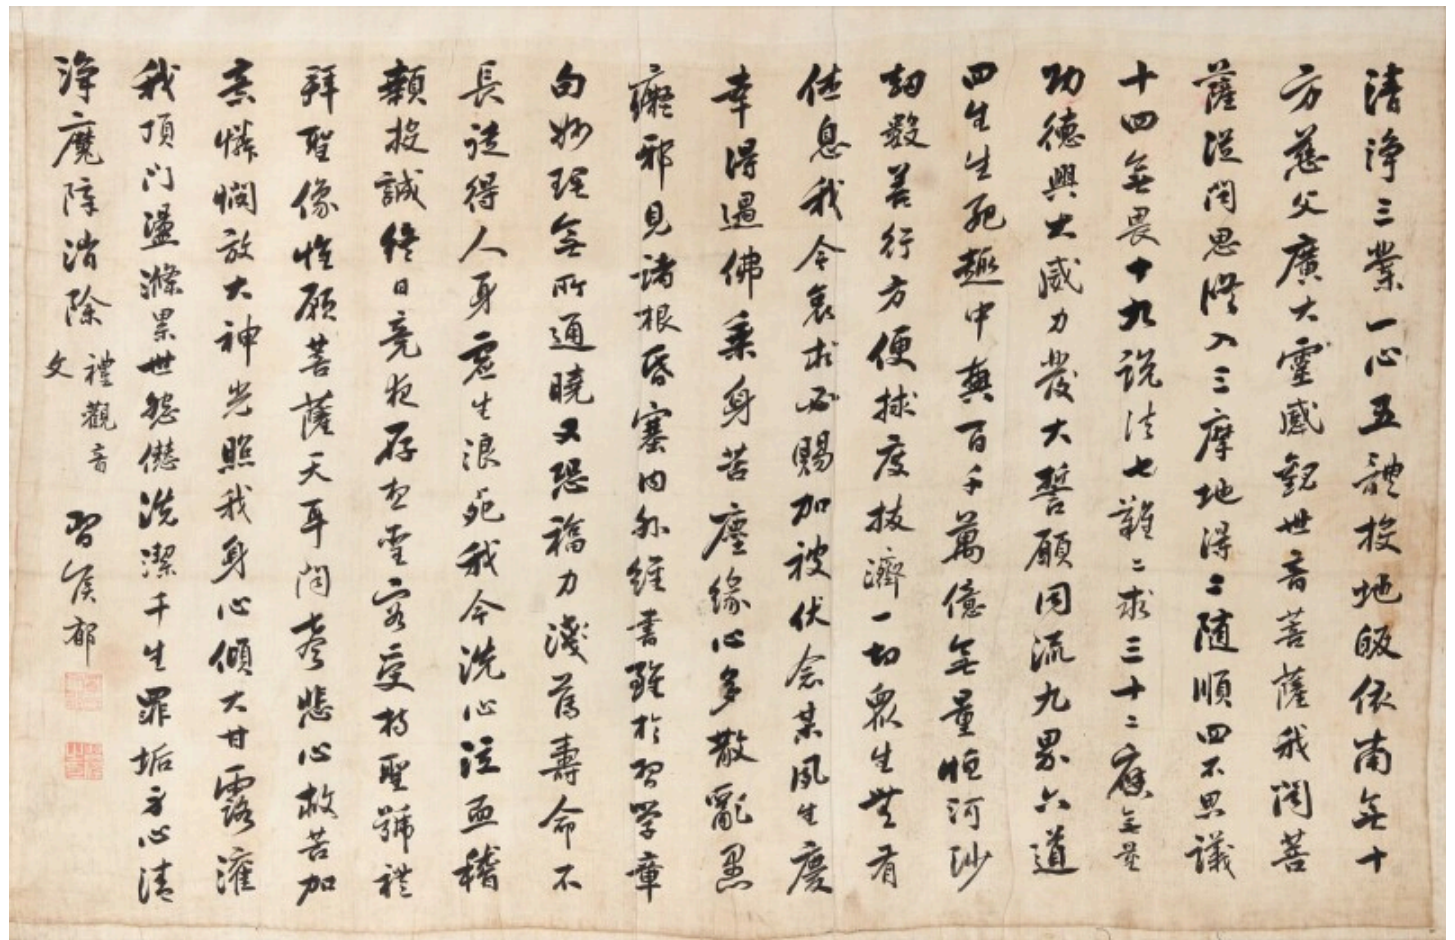 清淨三業一心五體投地皈依南無十
方慈父廣大靈感觀世音菩薩我聞菩
薩從聞思脩入三摩地得二隨順四不思議
十四無畏十九說法七難二求三十二應無量
功德興大威力發大誓願同流九界六道
四生生死趣中與百千萬億無量恒河沙
劫數善行方便捄度拔濟一切眾生無有
休息我今哀求必賜加被伏念某夙生慶
幸得遇佛乘身苦塵緣心多散亂愚
癡邪見諸根昏塞內外經書雖於習學章
句妙理無所通曉又恐福力淺薄壽命不
長徒得人身虛生浪死我今洗心泣血稽
顙投誠終日竟夜存想聖容受持聖號禮
拜聖像惟願菩薩天耳聞聲悲心救苦加
哀憐憫放大神光照我身心傾大甘露灌
我頂門盪滌累世怨讎洗潔千生罪垢身心清
淨魔障消除 禮觀音
文
習侯都